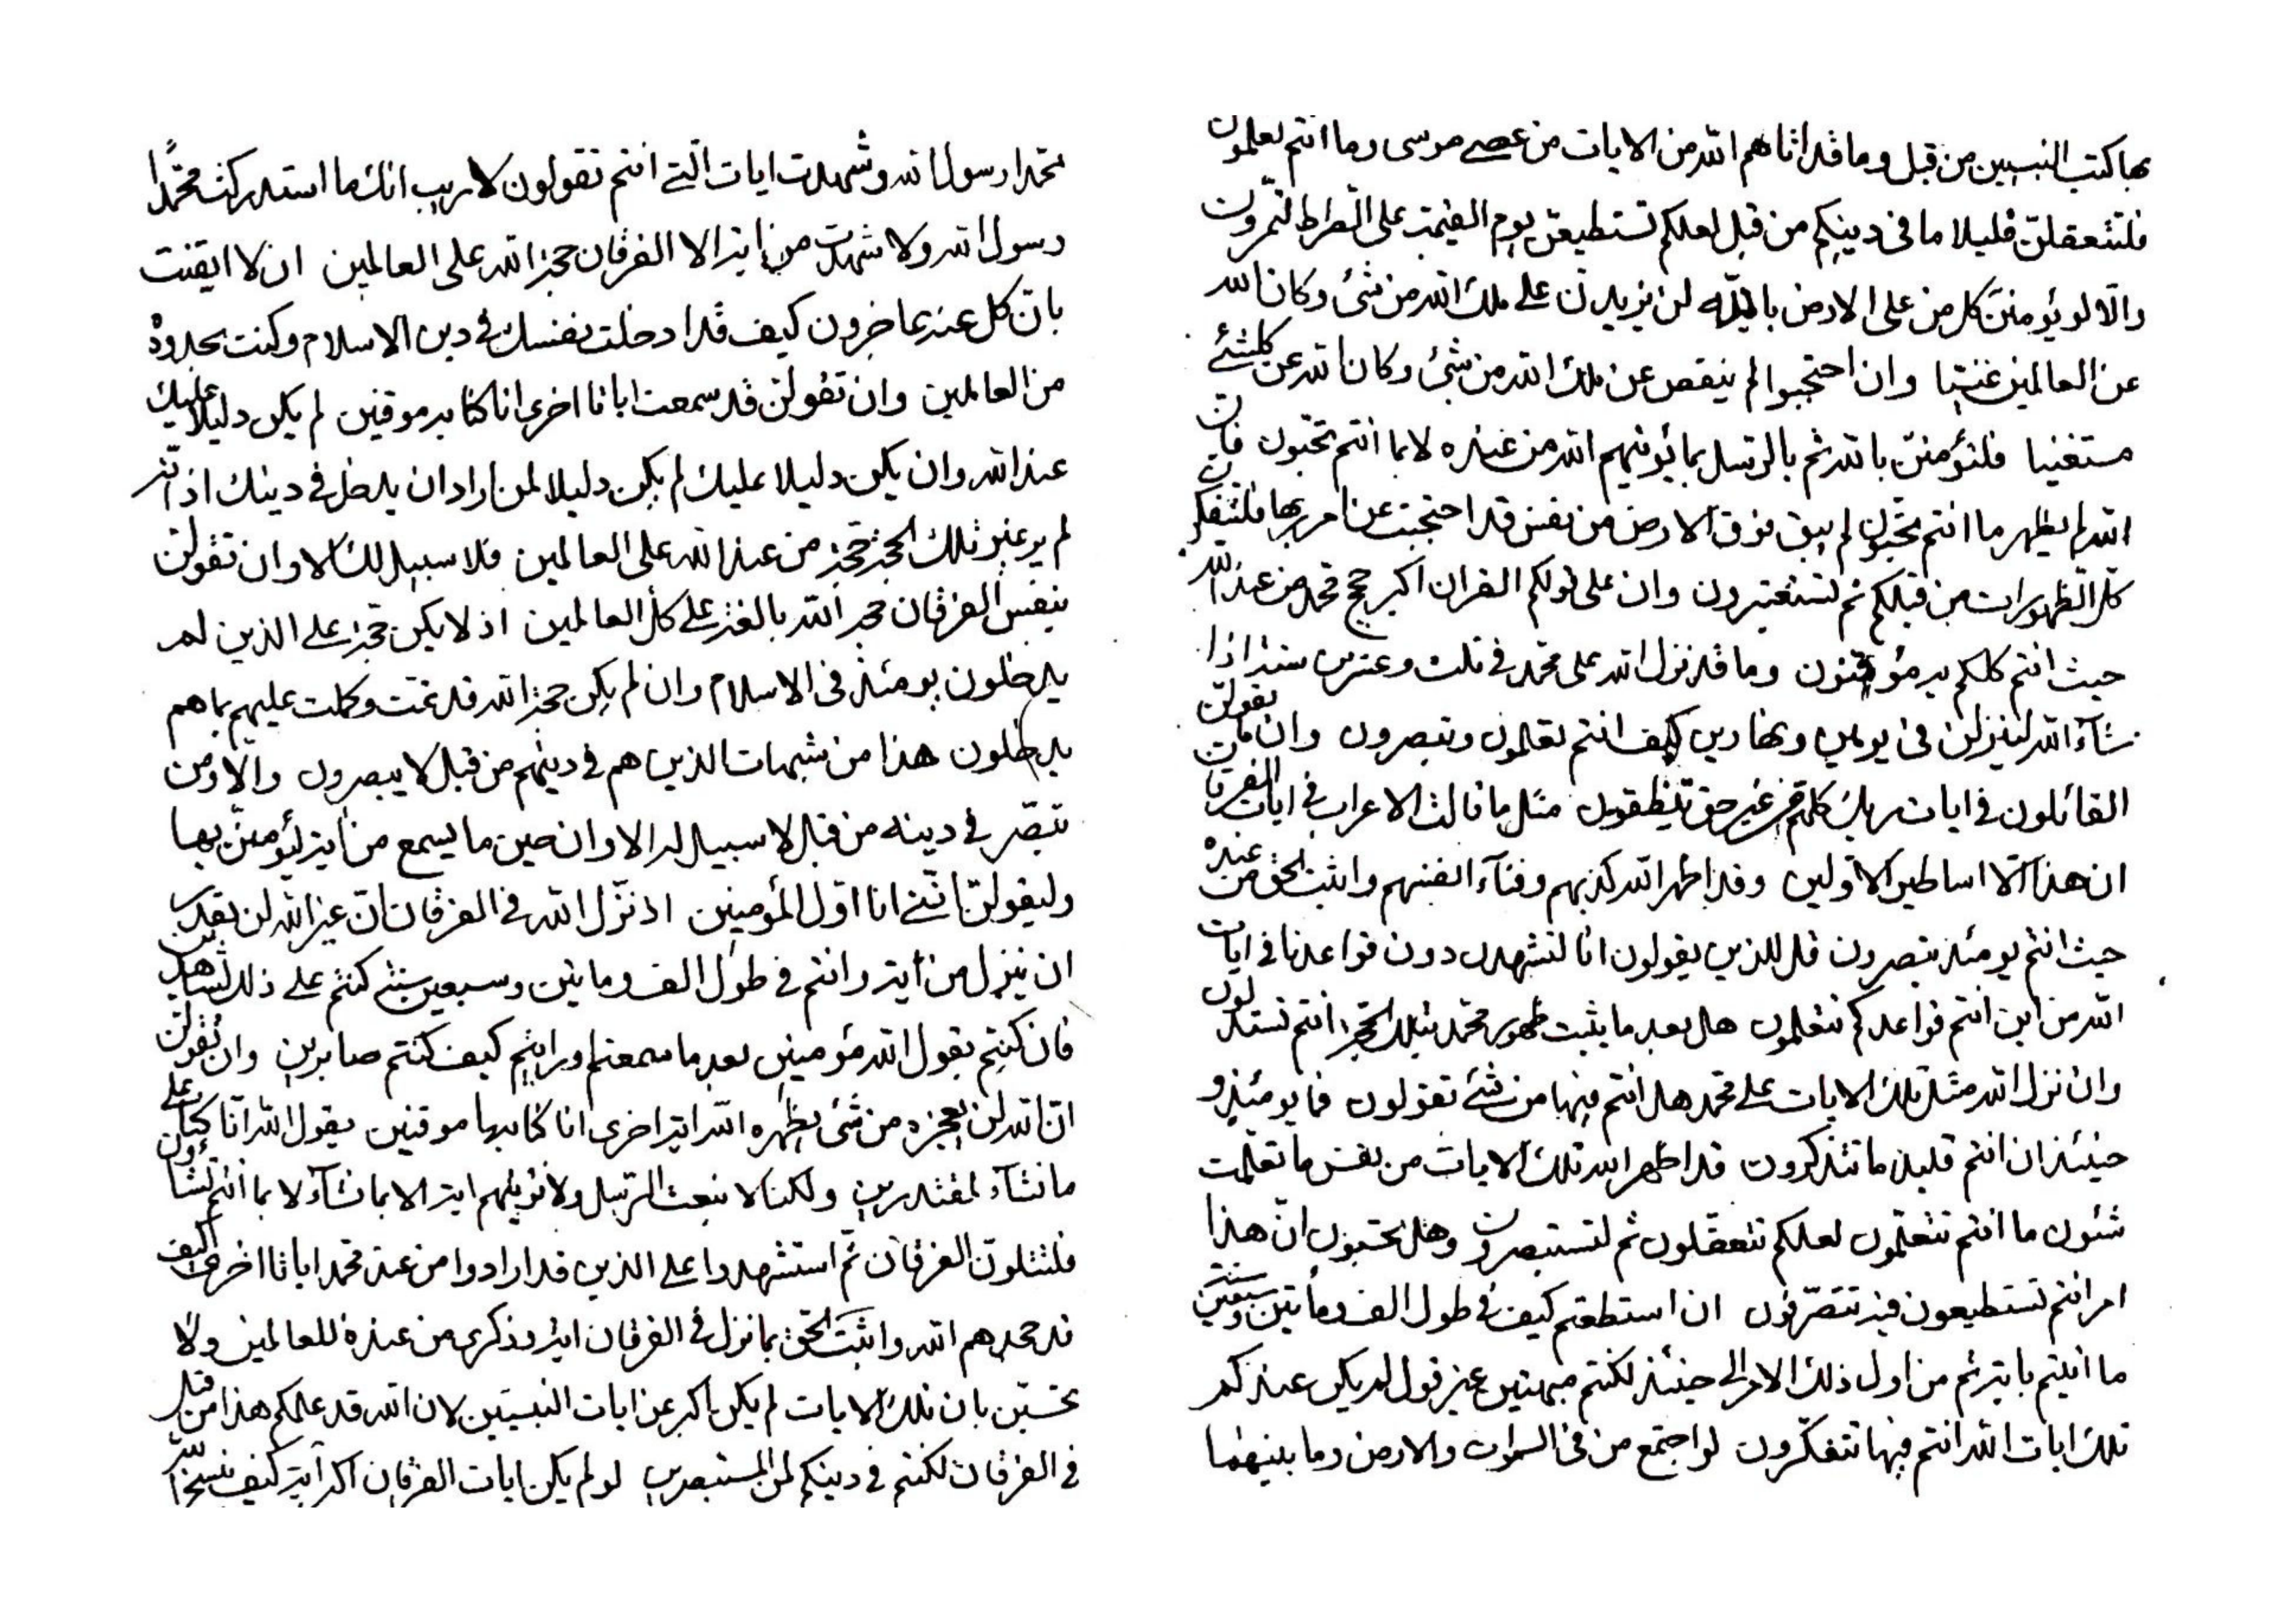 بها كتب النبيين من قبل وما قد اتاهم الله من الايات من عصى موسى وما انتم تعلمون
فلتتعقلن قليلا ما فى دينكم من قبل لعلكم تستطيعن يوم القيمة على الصراط لتمرون
والا لو يؤمنن كل من على الارض بالله لن يزيدن على ملك الله من شئ وكان الله
عن العالمين غنيا وان احتجبوا لم ينقص عن ملك الله من شئ وكان الله عن كلشئ
مستغنيا فلتؤمنن بالله ثم بالرسل بما يؤتيهم الله من عنده لا بما انتم تحبون فان
الله لم يظهر ما انتم تحبون لم يبق فوق الارض من نفس قد احتجبت عن امر ربها فلتتفكرن
كل الظهورات من قبلكم ثم لتستعبرون وان على قولكم القران اكبر حجج محمد من عند الله
حيث انتم كلكم به مؤمنون وما قد نزل الله على محمد فى ثلث وعشرين سنة اذا
شاء الله لينزلن فى يومين وبهادين كيف انتم تعلمون وتبصرون وان ما تقولن
القائلون فى ايات ربك كلهم بغير حق ينطقون مثل ما قالت الاعراب فى ايات الفرقان
ان هذا الا اساطير الاولين وقد اظهر الله كذبهم وفناء انفسهم واثبت الحق من عنده
حيث انتم يومئذ تبصرون قل للذين يقولون انا لنشهدن دون قواعدنا فى ايات
الله من اين انتم قواعدكم تتعلمون هل بعد ما يثبت ظهور محمد بتلك الحجة انتم تستدلون
وان نزل الله مثل تلك الايات على محمد هل انتم فيها من شئ تقولون فما يومئذ و
حينئذ ان انتم قليلا ما تتذكرون قد اظهر الله تلك الايات من نفس ما تعلمت
شئون ما انتم تتعلمون لعلكم تتعقلون ثم لتستبصرون وهل تحسبون ان هذا
امر انتم تستطيعون فيه تتصرفون ان استطعتم كيف فى طول الف ومأتين وسبعين سنة
ما اتيتم باية ثم من اول ذلك الامر الى حينئذ لكنتم مبهتين غير قول لم يكن عندكم
تلك ايات الله انتم فيها تتفكرون لو اجتمع من فى السموات والارض وما بينهما
محمدا رسول الله وشهدت ايات التى انتم تقولون لا ريب انك ما استدركت محمدا
رسول الله ولا شهدت من اية الا الفرقان حجة الله على العالمين ان لا ايقنت
بان كل عنه عاجزون كيف قد ادخلت نفسك فى دين الاسلام وكنت بحدوده
من العالمين وان تقولن قد سمعت ايات اخرى انا كنا به موقنين لم يكن دليلا عليك
عند الله وان يكن دليلا عليك لم يكن دليلا لمن اراد ان يدخل فى دينك اذ انه
لم ير غير تلك الحجة حجة من عند الله على العالمين فلا سبيل لك الا وان تقولن
بنفس الفرقان حجة الله بالغة على كل العالمين اذ لا يكن حجة على الذين لم
يدخلون يومئذ فى الاسلام وان لم يكن حجة الله قد تمت وكملت عليهم بما هم
يدخلون هذا من شبهات الذين هم فى دينهم من قبل لا يبصرون والا ومن
تبصر فى دينه من قبل لا سبيل له الا وان حين ما يسمع من اية ليؤمنن بها
وليقولن اننى انا اول المؤمنين اذ نزل الله فى الفرقان ان غير الله لن يقدر
ان ينزل من أية وانتم فى طول الف ومأتين وسبعين سنة كنتم على ذلك لشاهدين
فان كنتم بقول الله مؤمنين بعد ما سمعتم ورايتم كيف كنتم صابرين وان تقولن
ان الله لن يعجزه من شئ يظهره الله اية اخرى انا كنا بها موقنين يقول الله انا كنا على
ما نشاء لمقتدرين ولكنا لا نبعث الرسل ولا نؤتيهم اية الا بما نشاء لا بما انتم تشاؤن
فلتتلون الفرقان ثم استشهدوا على الذين قد ارادوا من عند محمد ايات اخرى كيف
قد جحدهم الله واثبت الحق بما نزل فى الفرقان اية وذكرى من عنده للعالمين ولا
تحسبن بان تلك الايات لم يكن باكبر عن ايات النبيين لان الله قد علمكم هذا من قبل
فى الفرقان لكنتم فى دينكم لمن المستبصرين لو لم يكن ايات الفرقان اكبر أية كيف نسخ الله